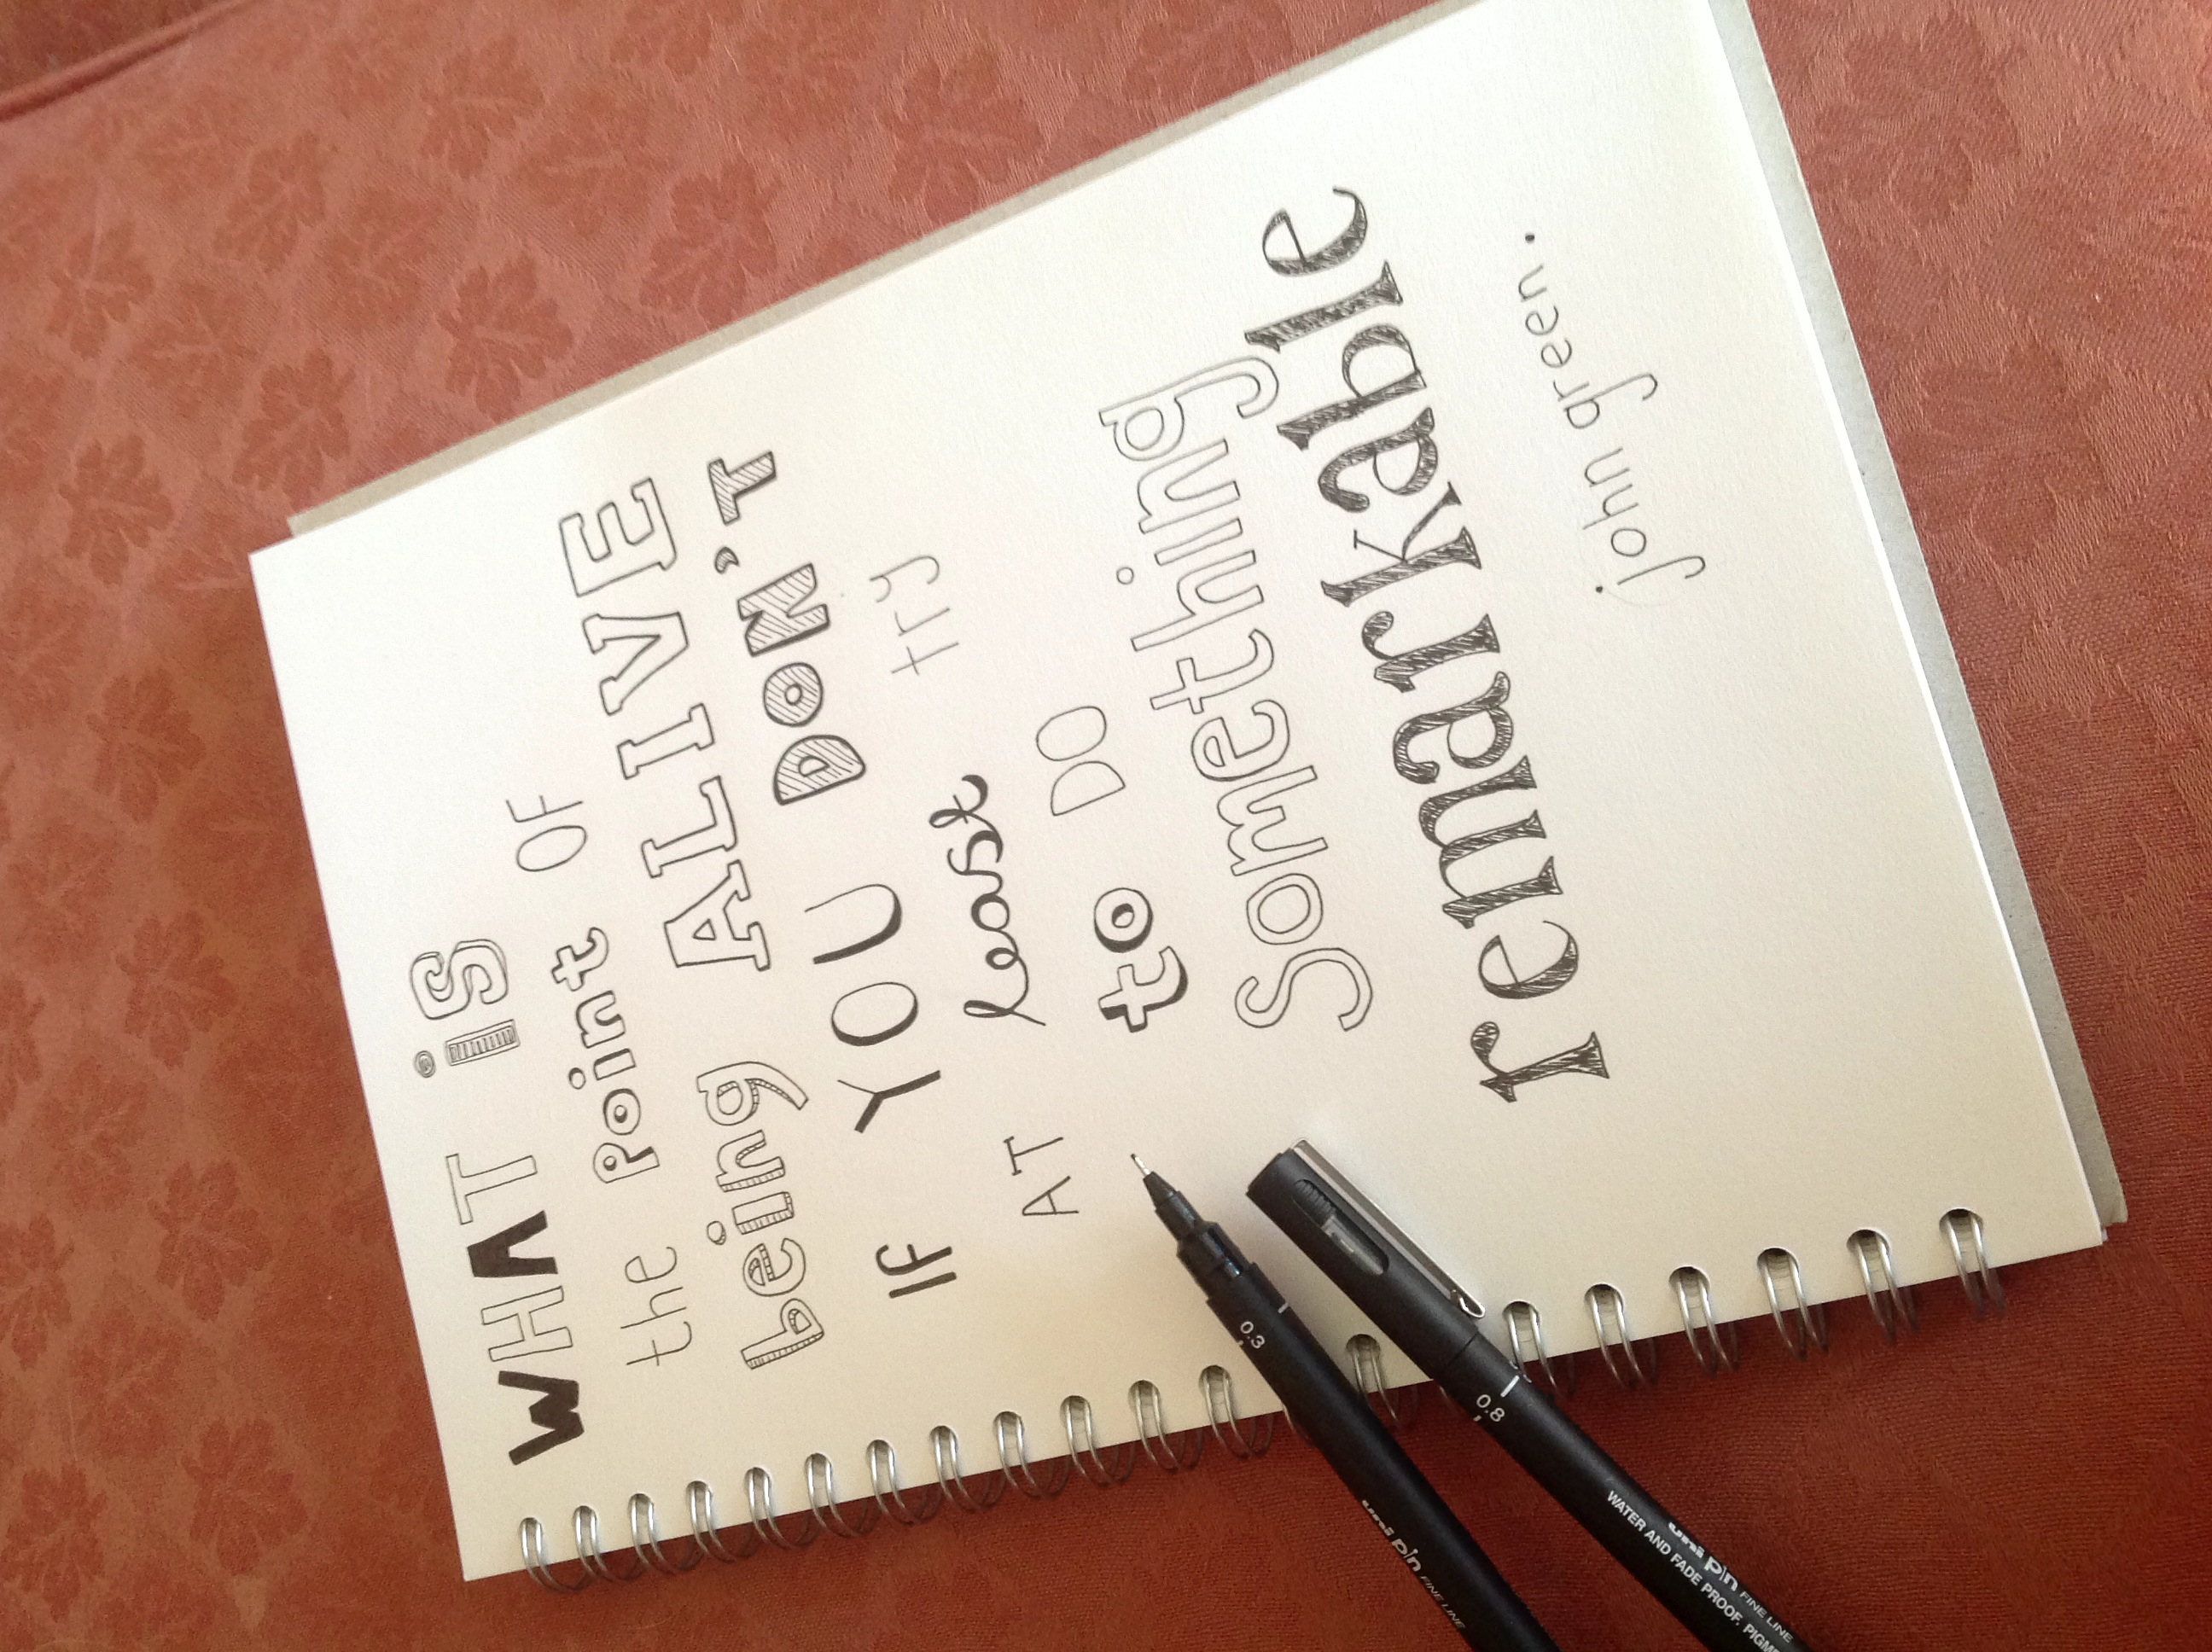 WHAT iS
the Point OF
being ALIVE
IF YOU DON'T
AT least try
to DO
Something
remarkable
john green.
0.3
uni pin FINE LINE
0.8
uni pin FINE LINE
WATER AND FADE PROOF.